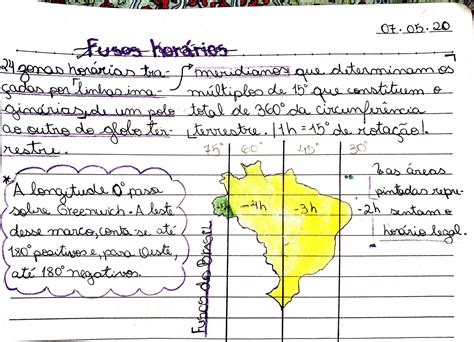 07.05.20
Fusos horários
24 zonas horárias tra-
çadas por linhas ima-
ginárias, de um polo
ao outro do globo ter-
restre.
meridianos que determinam os
múltiplos de 15° que constituem o
total de 360° da circunferência
terrestre. 1h = 15° de rotação!
75° 60° 45° 30°
* A longitude 0° passa
sobre Greenwich. A leste
desse marco, conta-se até
180° positivos e, para Oeste,
até 180° negativos.
Fusos do Brasil
-4h -3h -2h
as áreas
pintadas repre-
sentam o
horário legal.